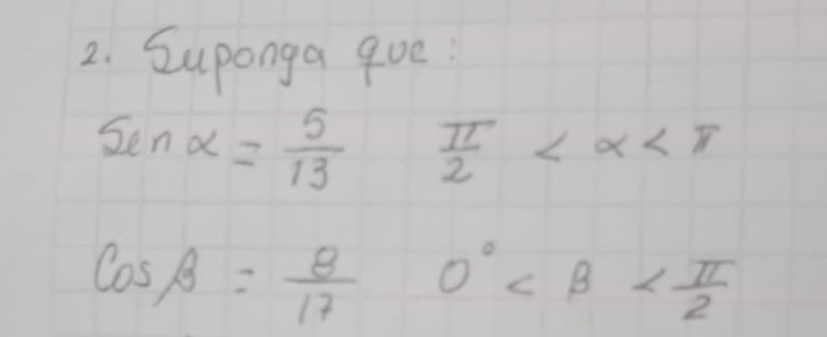 2. Suponga que:
Sen α = 5/13   π/2 < α < π
Cos β = 8/17   0° < β < π/2